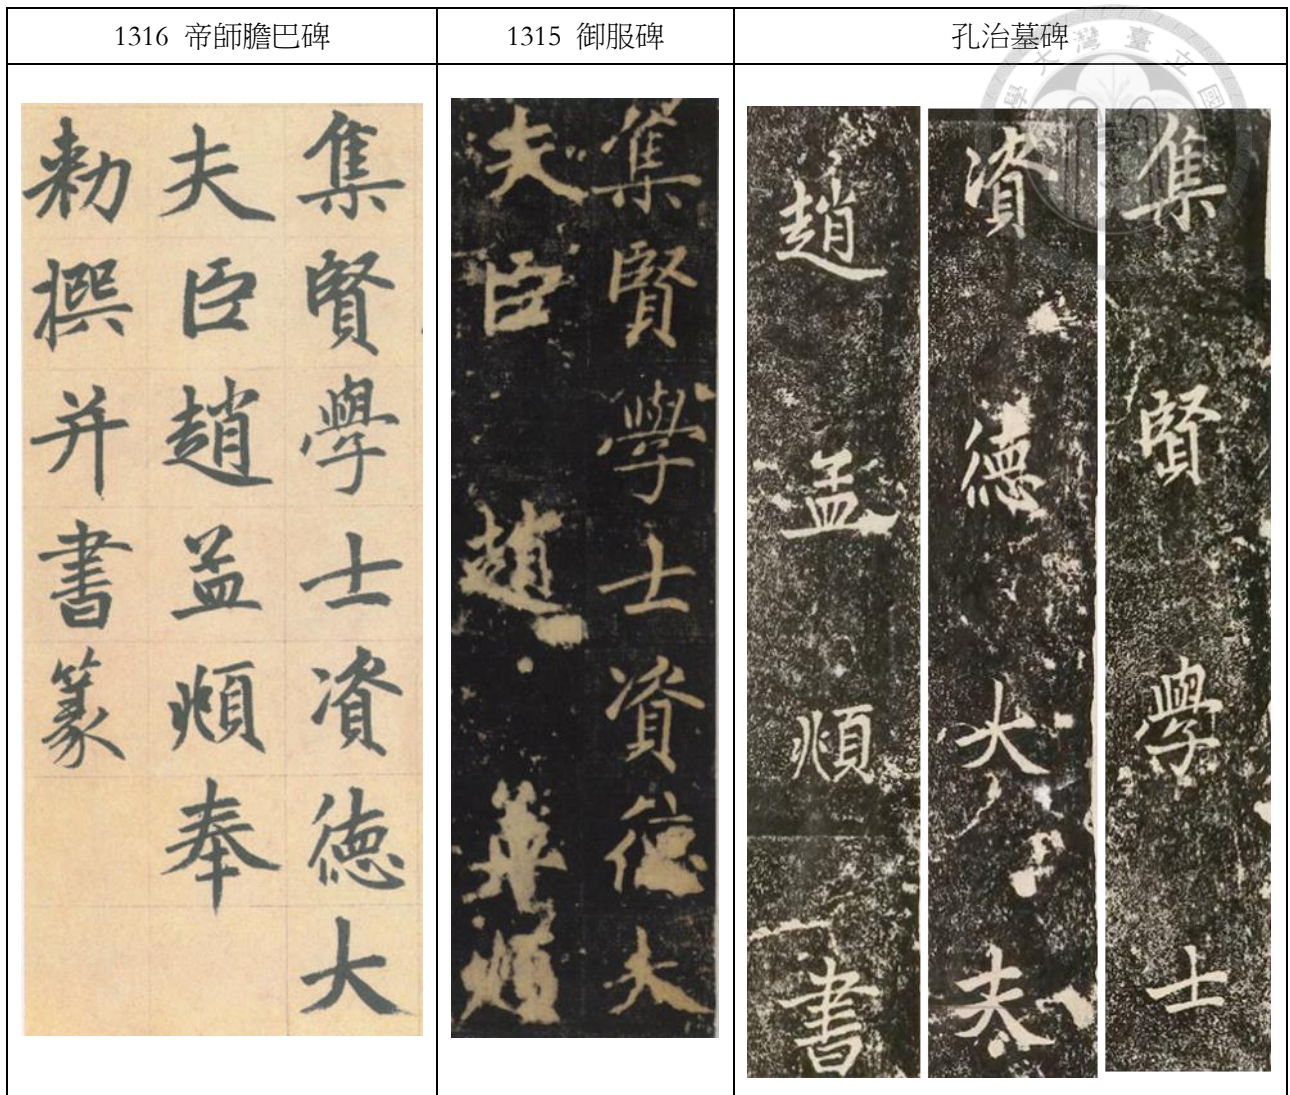 1316 帝師膽巴碑
1315 御服碑
孔治墓碑
集賢學士資德大
夫臣趙孟頫奉
勅撰并書篆
集賢學士資德大
夫臣趙孟頫
集賢學士
資德大夫
趙孟頫書
國立臺灣大學